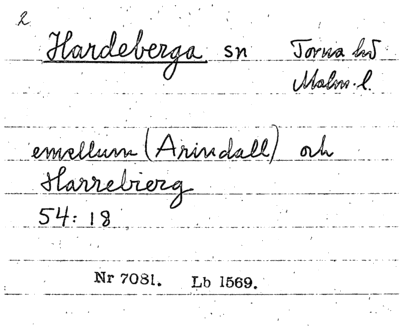 2
Hardeberga sn Torna hd
Malm. l.
emellum (Arindall) och
Harrebierg
54:18
Nr 7081. Lb 1569.